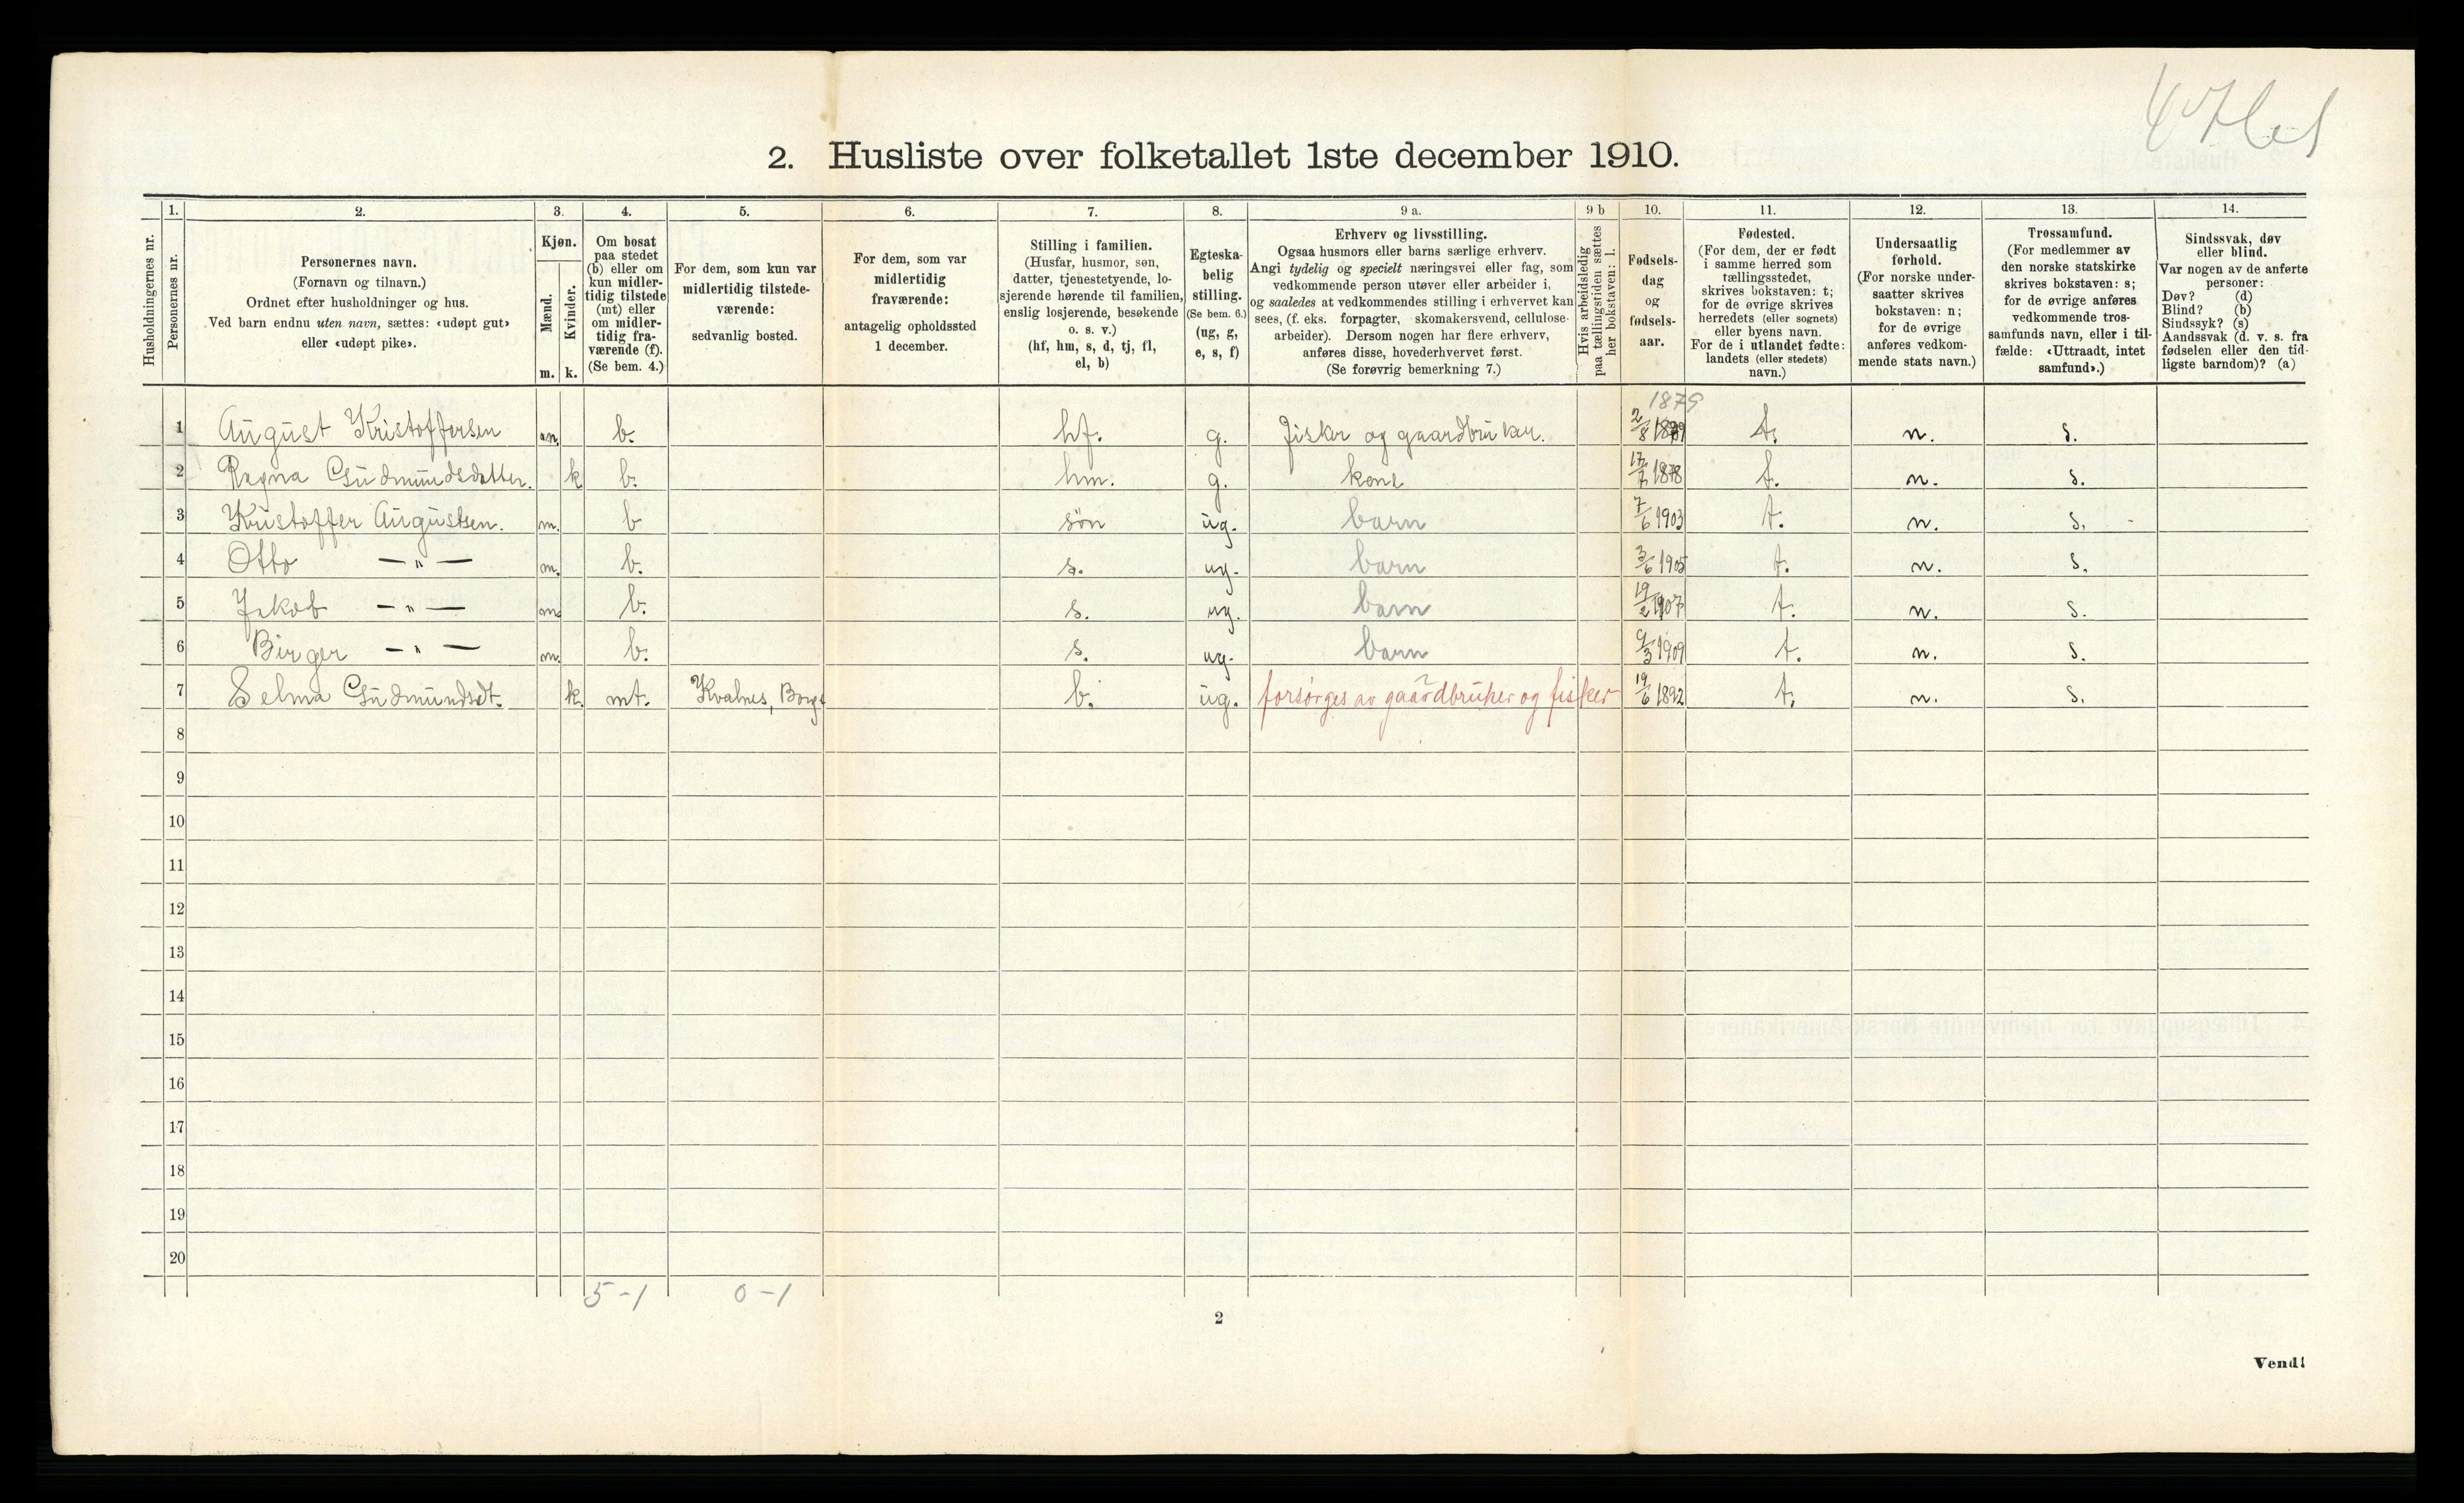 2. Husliste over folketallet 1ste december 1910.
Husholdningernes nr.
1.
Personernes nr.
2.
Personernes navn.
(Fornavn og tilnavn.)
Ordnet efter husholdninger og hus.
Ved barn endnu uten navn, sættes: «udøpt gut»
eller «udøpt pike».
3.
Kjøn.
Mænd.
Kvinder.
m. k.
4.
Om bosat
paa stedet
(b) eller om
kun midler-
tidig tilstede
(mt) eller
om midler-
tidig fra-
værende (f).
(Se bem. 4.)
5.
For dem, som kun var
midlertidig tilstede-
værende:
sedvanlig bosted.
6.
For dem, som var
midlertidig
fraværende:
antagelig opholdssted
1 december.
7.
Stilling i familien.
(Husfar, husmor, søn,
datter, tjenestetyende, lo-
sjerende hørende til familien,
enslig losjerende, besøkende
o. s. v.)
(hf, hm, s, d, tj, fl,
el, b)
8.
Egteska-
belig
stilling.
(Se bem. 6.)
(ug, g,
e, s, f)
9 a.
Erhverv og livsstilling.
Ogsaa husmors eller barns særlige erhverv.
Angi tydelig og specielt næringsvei eller fag, som
vedkommende person utøver eller arbeider i,
og saaledes at vedkommendes stilling i erhvervet kan
sees, (f. eks. forpagter, skomakersvend, cellulose-
arbeider). Dersom nogen har flere erhverv,
anføres disse, hovederhvervet først.
(Se forøvrig bemerkning 7.)
9 b
Hvis arbeidsledig
paa tællingstiden sættes
her bokstaven: l.
10.
Fødsels-
dag
og
fødsels-
aar.
11.
Fødested.
(For dem, der er født
i samme herred som
tællingsstedet,
skrives bokstaven: t;
for de øvrige skrives
herredets (eller sognets)
eller byens navn.
For de i utlandet fødte:
landets (eller stedets)
navn.)
12.
Undersaatlig
forhold.
(For norske under-
saatter skrives
bokstaven: n;
for de øvrige
anføres vedkom-
mende stats navn.)
13.
Trossamfund.
(For medlemmer av
den norske statskirke
skrives bokstaven: s;
for de øvrige anføres
vedkommende tros-
samfunds navn, eller i til-
fælde: «Uttraadt, intet
samfund».)
14.
Sindssvak, døv
eller blind.
Var nogen av de anførte
personer:
Døv? (d)
Blind? (b)
Sindssyk? (s)
Aandssvak (d. v. s. fra
fødselen eller den tid-
ligste barndom)? (a)
1879
1 August Kristoffersen m. b. hf. g. Fisker og gaardbruker. 2/8 1879 t. n. s.
2 Ragna Gudmundsdatter. k b. hm. g. kone 17/7 1878 t. n. s.
3 Kristoffer Augustsen. m. b søn ug. barn 7/6 1903 t. n. s.
4 Otto — „ — m. b. s. ug. barn 3/6 1905 t. n. s.
5 Jakob — „ — m b. s. ug. barn 19/2 1907 t. n. s.
6 Birger — „ — m. b. s. ug. barn 9/3 1909 t. n. s.
7 Selma Gudmundsdt. k. mt. Kvalnes, Borge b. ug. forsørges av gaardbruker og fisker 19/6 1892 t. n. s.
8
9
10
11
12
13
14
15
16
17
18
19
20
5-1 0-1
2
Vend!